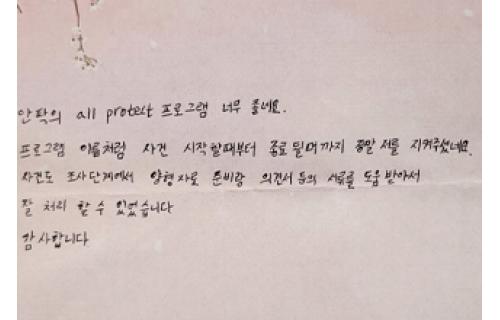 안팍의 all protect 프로그램 너무 좋네요.
프로그램 이름처럼 사건 시작할때부터 종료될때까지 정말 저를 지켜주셨네요.
사건도 조사단계에서 양형자료 준비랑 의견서 등의 서류를 도움받아서
잘 처리 할 수 있었습니다
감사합니다